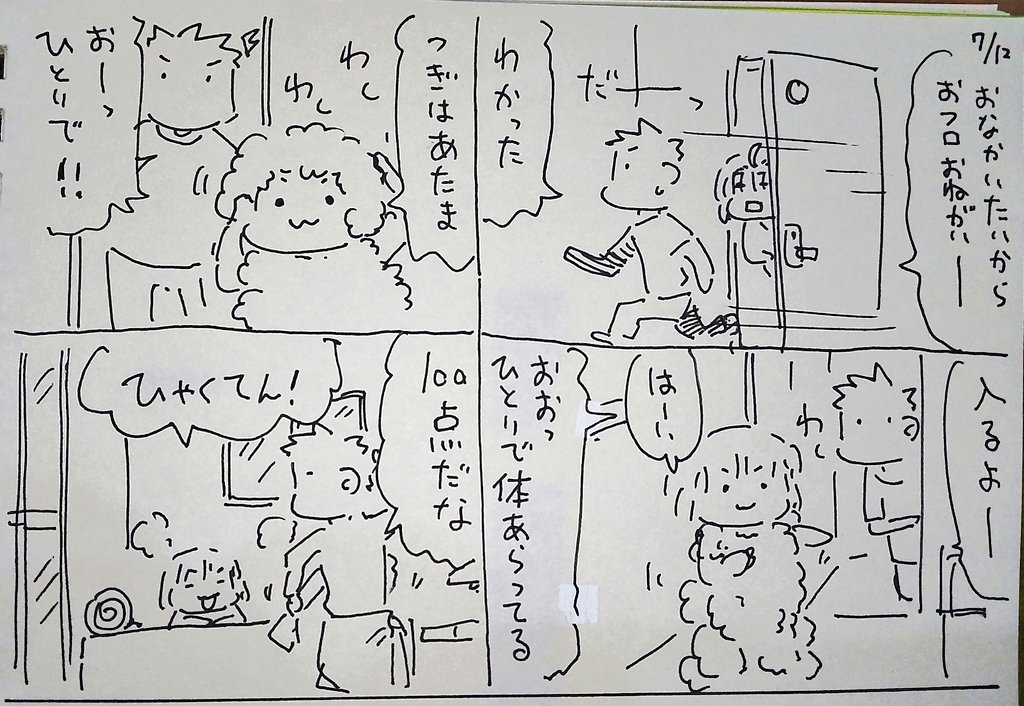 7/12
おなかいたいから
おフロおねがいー
だーっ
ほほ
わかった
入るよー
わし
はーい
おおっ
ひとりで体あらってる
つぎはあたま
わし
わし
おーっ
ひとりで!!
100点だな
ひゃくてん!